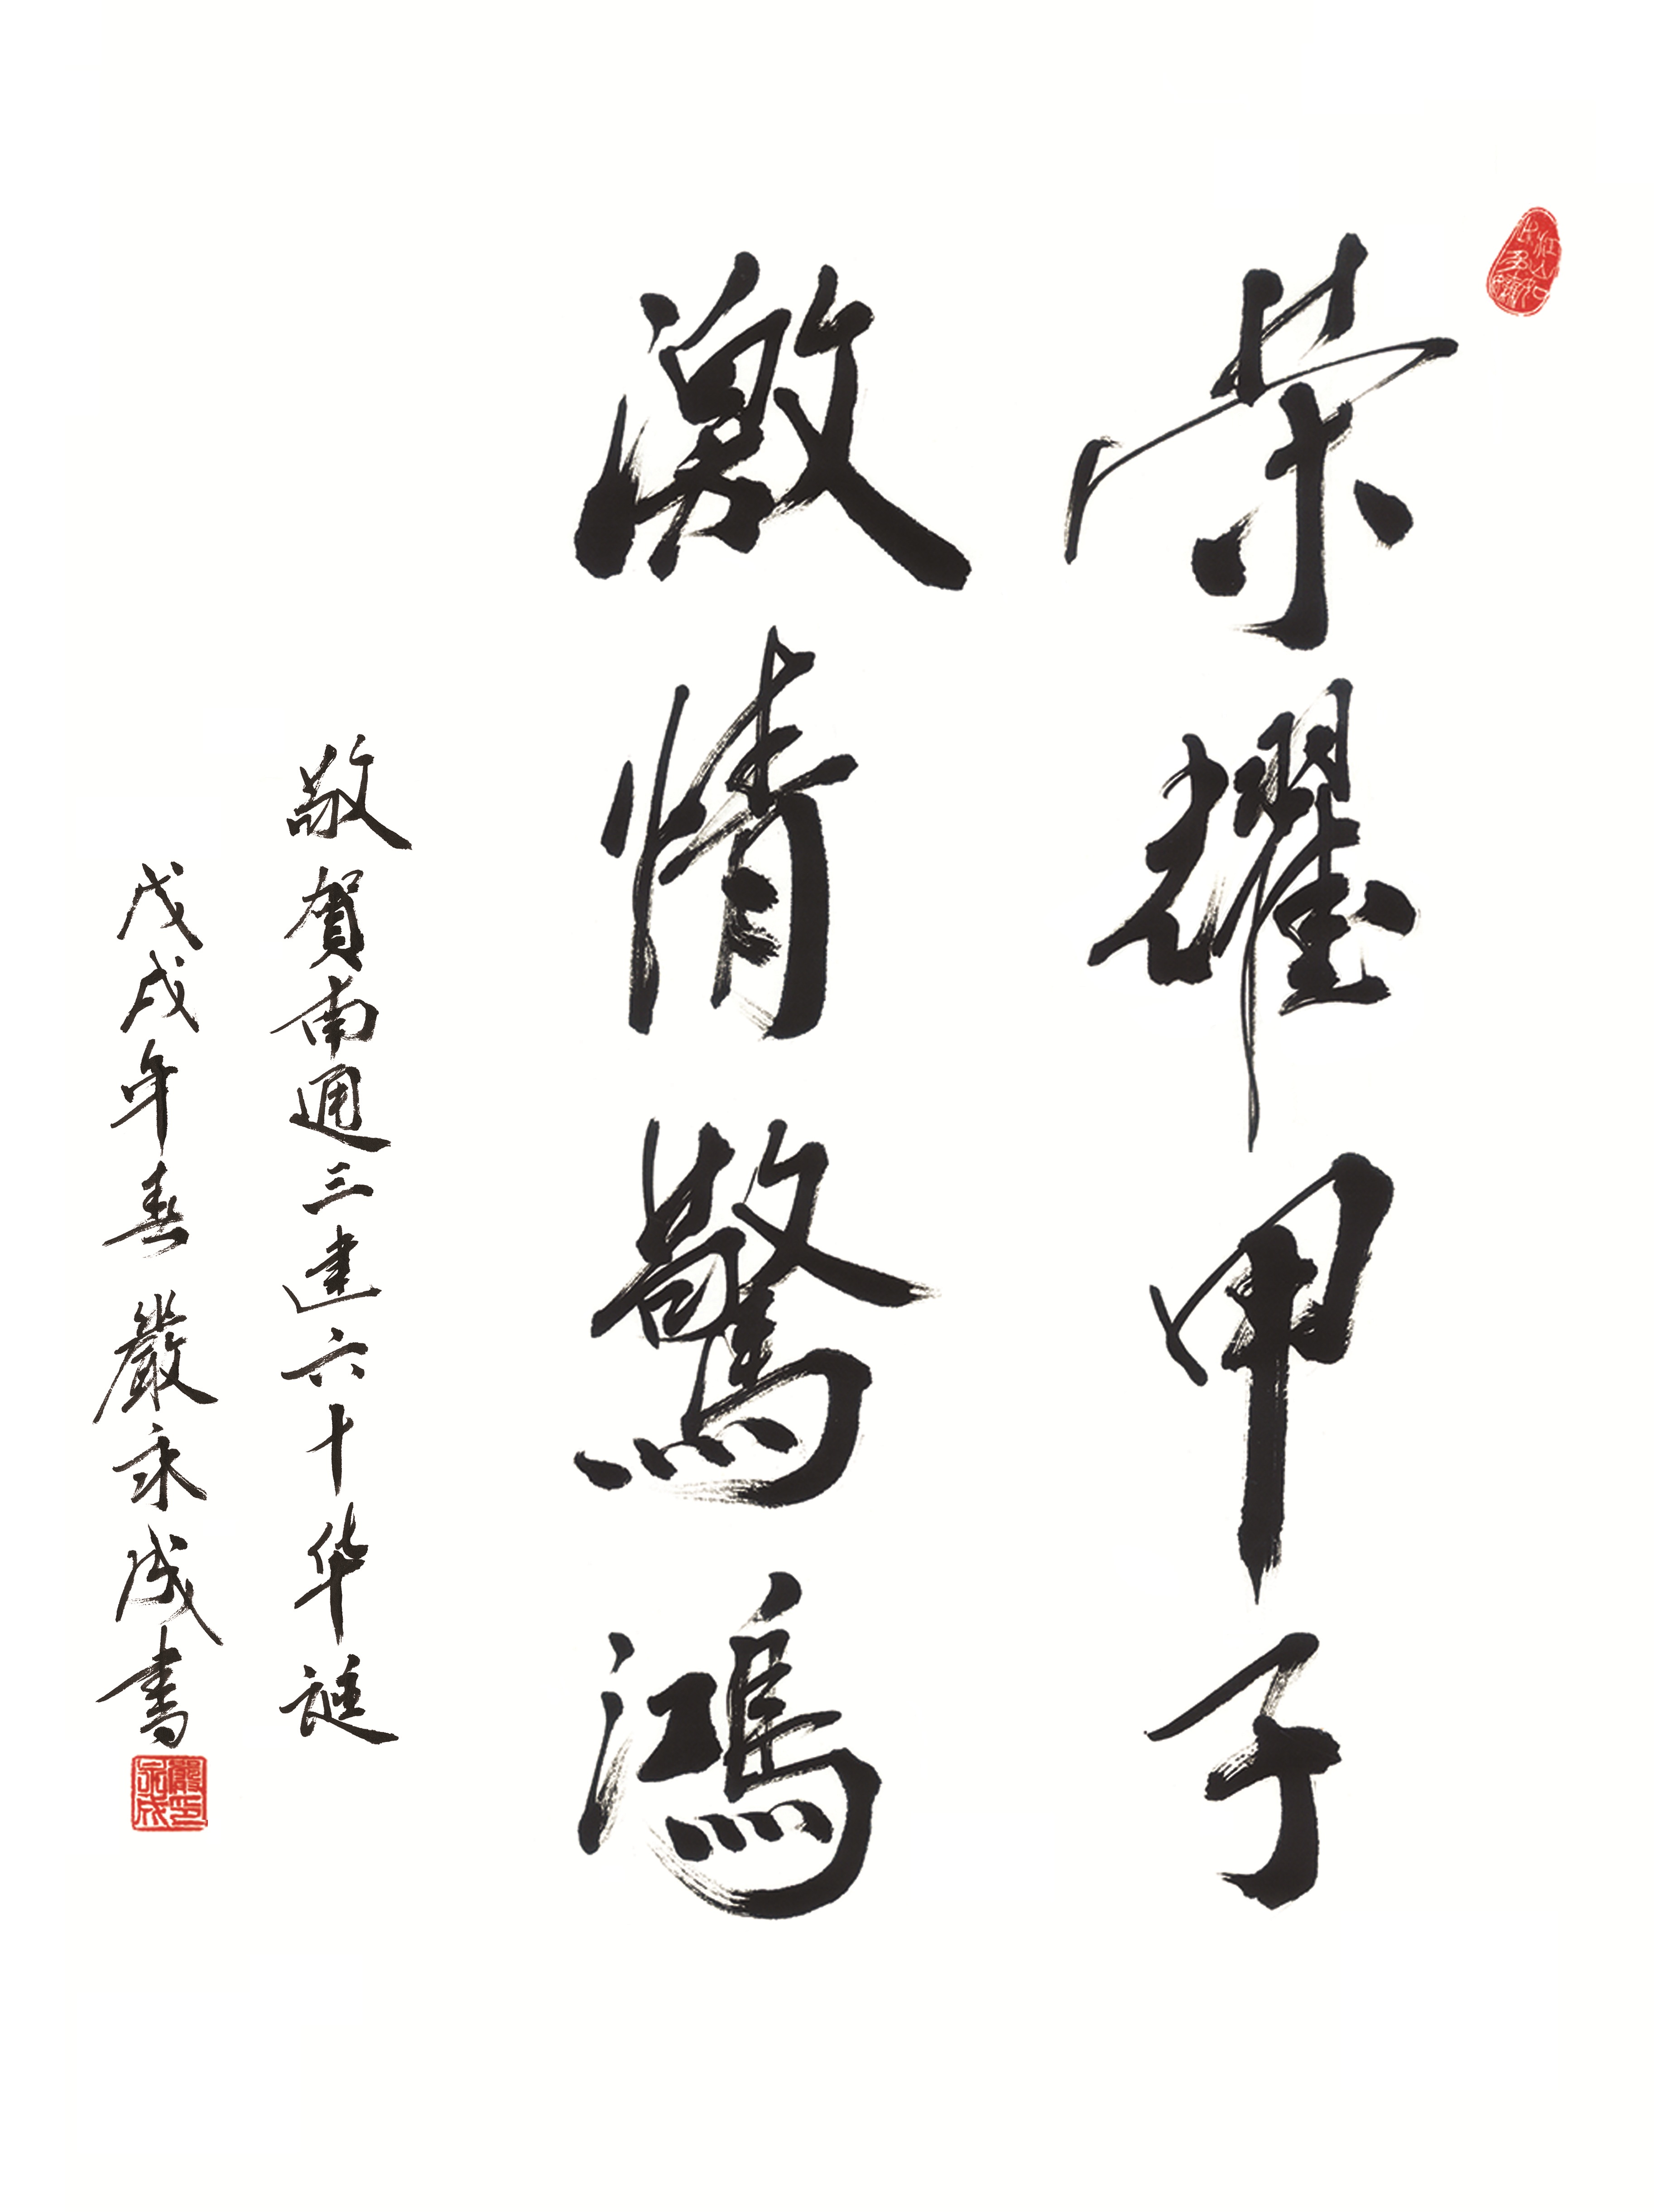 荣耀甲子
激情驚鴻
敬賀南通三建六十华誕
戊戌年春 嚴永成書
嚴印永成